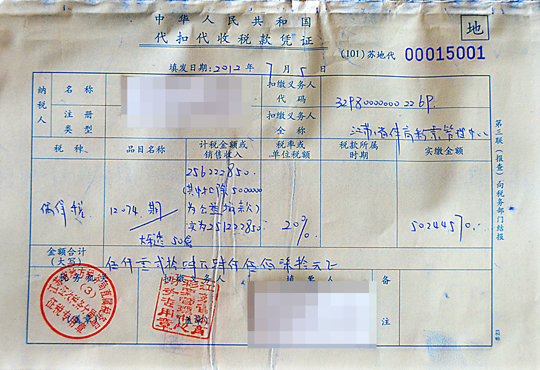 中华人民共和国
代扣代收税款凭证
地
(101)苏地代 00015001
填发日期:2012年7月5日
纳税人
名称
扣缴义务人代码
32P80000000226P
注册类型
扣缴义务人全称
江苏省体育彩票管理中心
税种
品目名称
计税金额或销售收入
税率或单位税额
税款所属时期
实缴金额
偶得税
12074期
大乐透 50倍
256222850.
(其中扣除5000000
为公益捐款)
实为251222850.
20%
50244570.
金额合计
(大写)
伍仟零贰拾肆万肆仟伍佰柒拾元正
税务机关
(盖章)
扣缴义务人
(盖章)
备注
(3)
征税专用章
第三联(报查)向税务部门结报